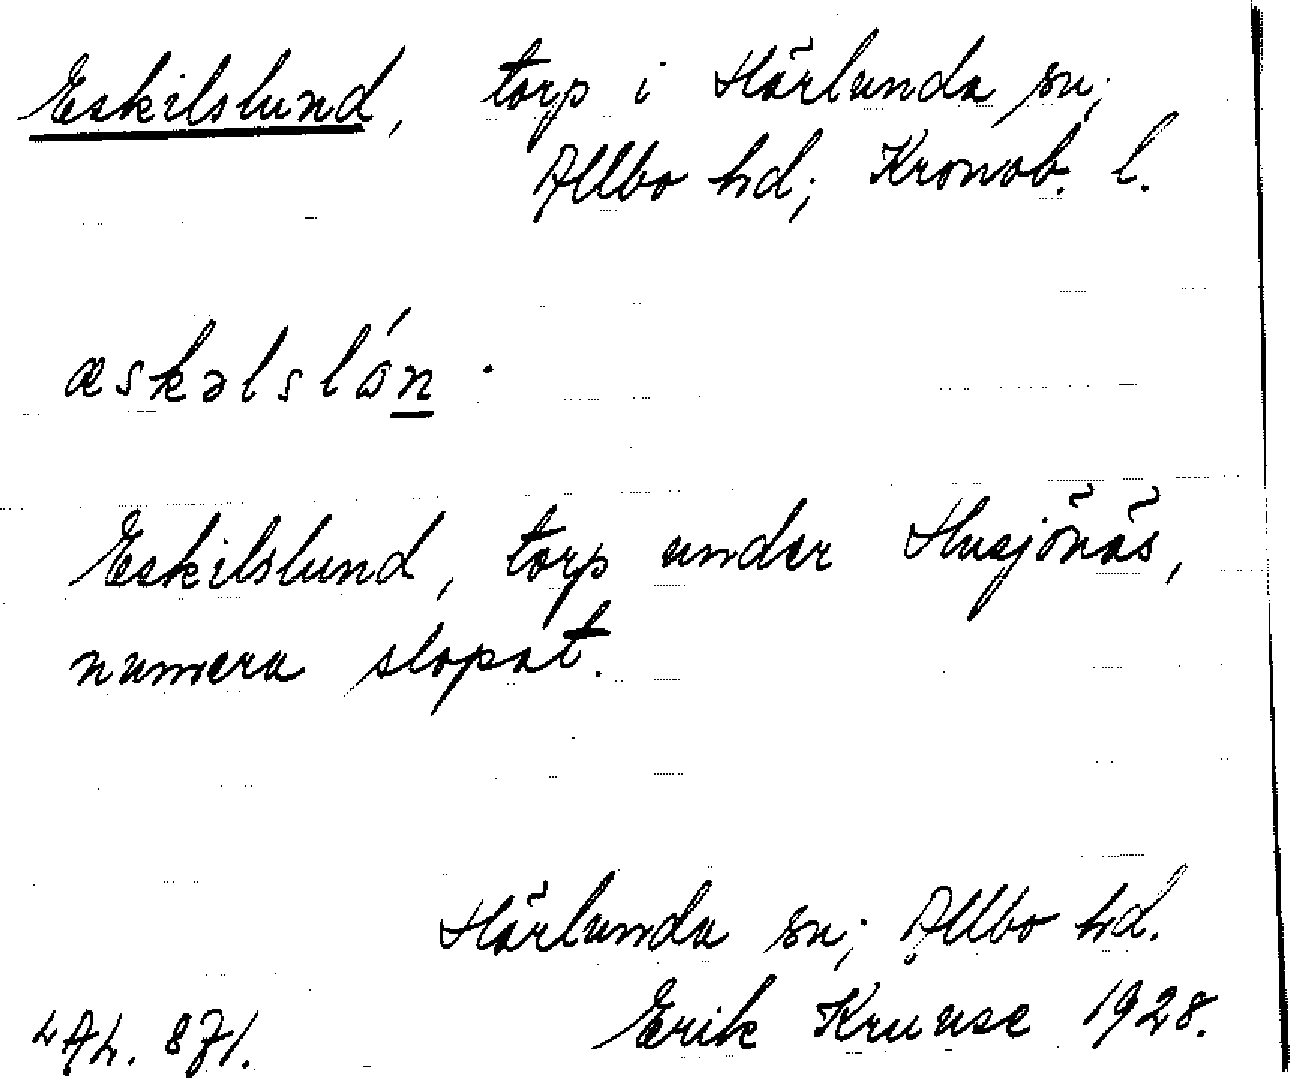 Eskilslund, torp i Härlunda sn;
Allbo hd; Kronob. l.
æskəlslón.
Eskilslund, torp under Husjönäs,
numera slopat.
Härlunda sn; Allbo hd.
Erik Kruuse 1928.
871.